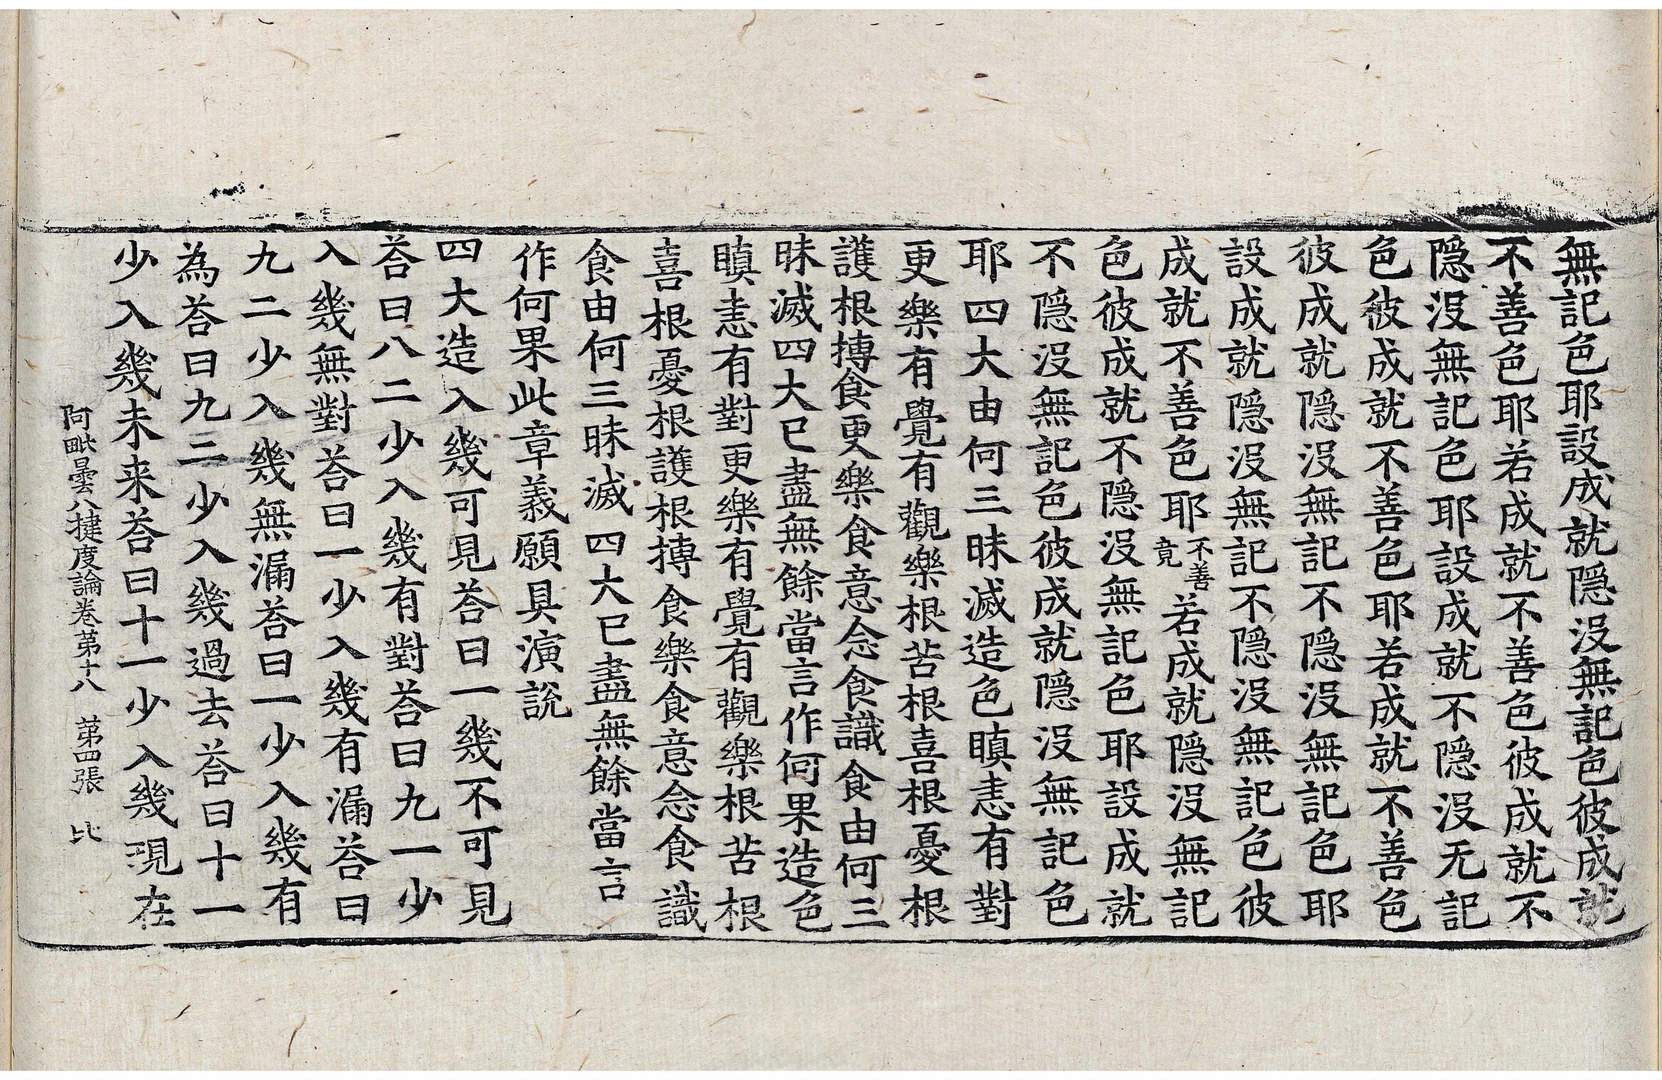 無記色耶設成就隱没無記色彼成就
不善色耶若成就不善色彼成就不
隱没無記色耶設成就不隱没无記
色彼成就不善色耶若成就不善色
彼成就隱没無記不隱没無記色耶
設成就隱没無記不隱没無記色彼
成就不善色耶不善竟若成就隱没無記
色彼成就不隱没無記色耶設成就
不隱没無記色彼成就隱没無記色
耶四大由何三昧滅造色瞋恚有對
更樂有覺有觀樂根苦根喜根憂根
護根摶食更樂食意念食識食由何三
昧滅四大已盡無餘當言作何果造色
瞋恚有對更樂有覺有觀樂根苦根
喜根憂根護根摶食樂食意念食識
食由何三昧滅四大已盡無餘當言
作何果此章義願具演説
四大造入幾可見荅曰一幾不可見
荅曰八二少入幾有對荅曰九一少
入幾無對荅曰一少入幾有漏荅曰
九二少入幾無漏荅曰一少入幾有
為荅曰九二少入幾過去荅曰十一
少入幾未来荅曰十一少入幾現在
阿毗曇八揵度論卷第十八　第四張　比